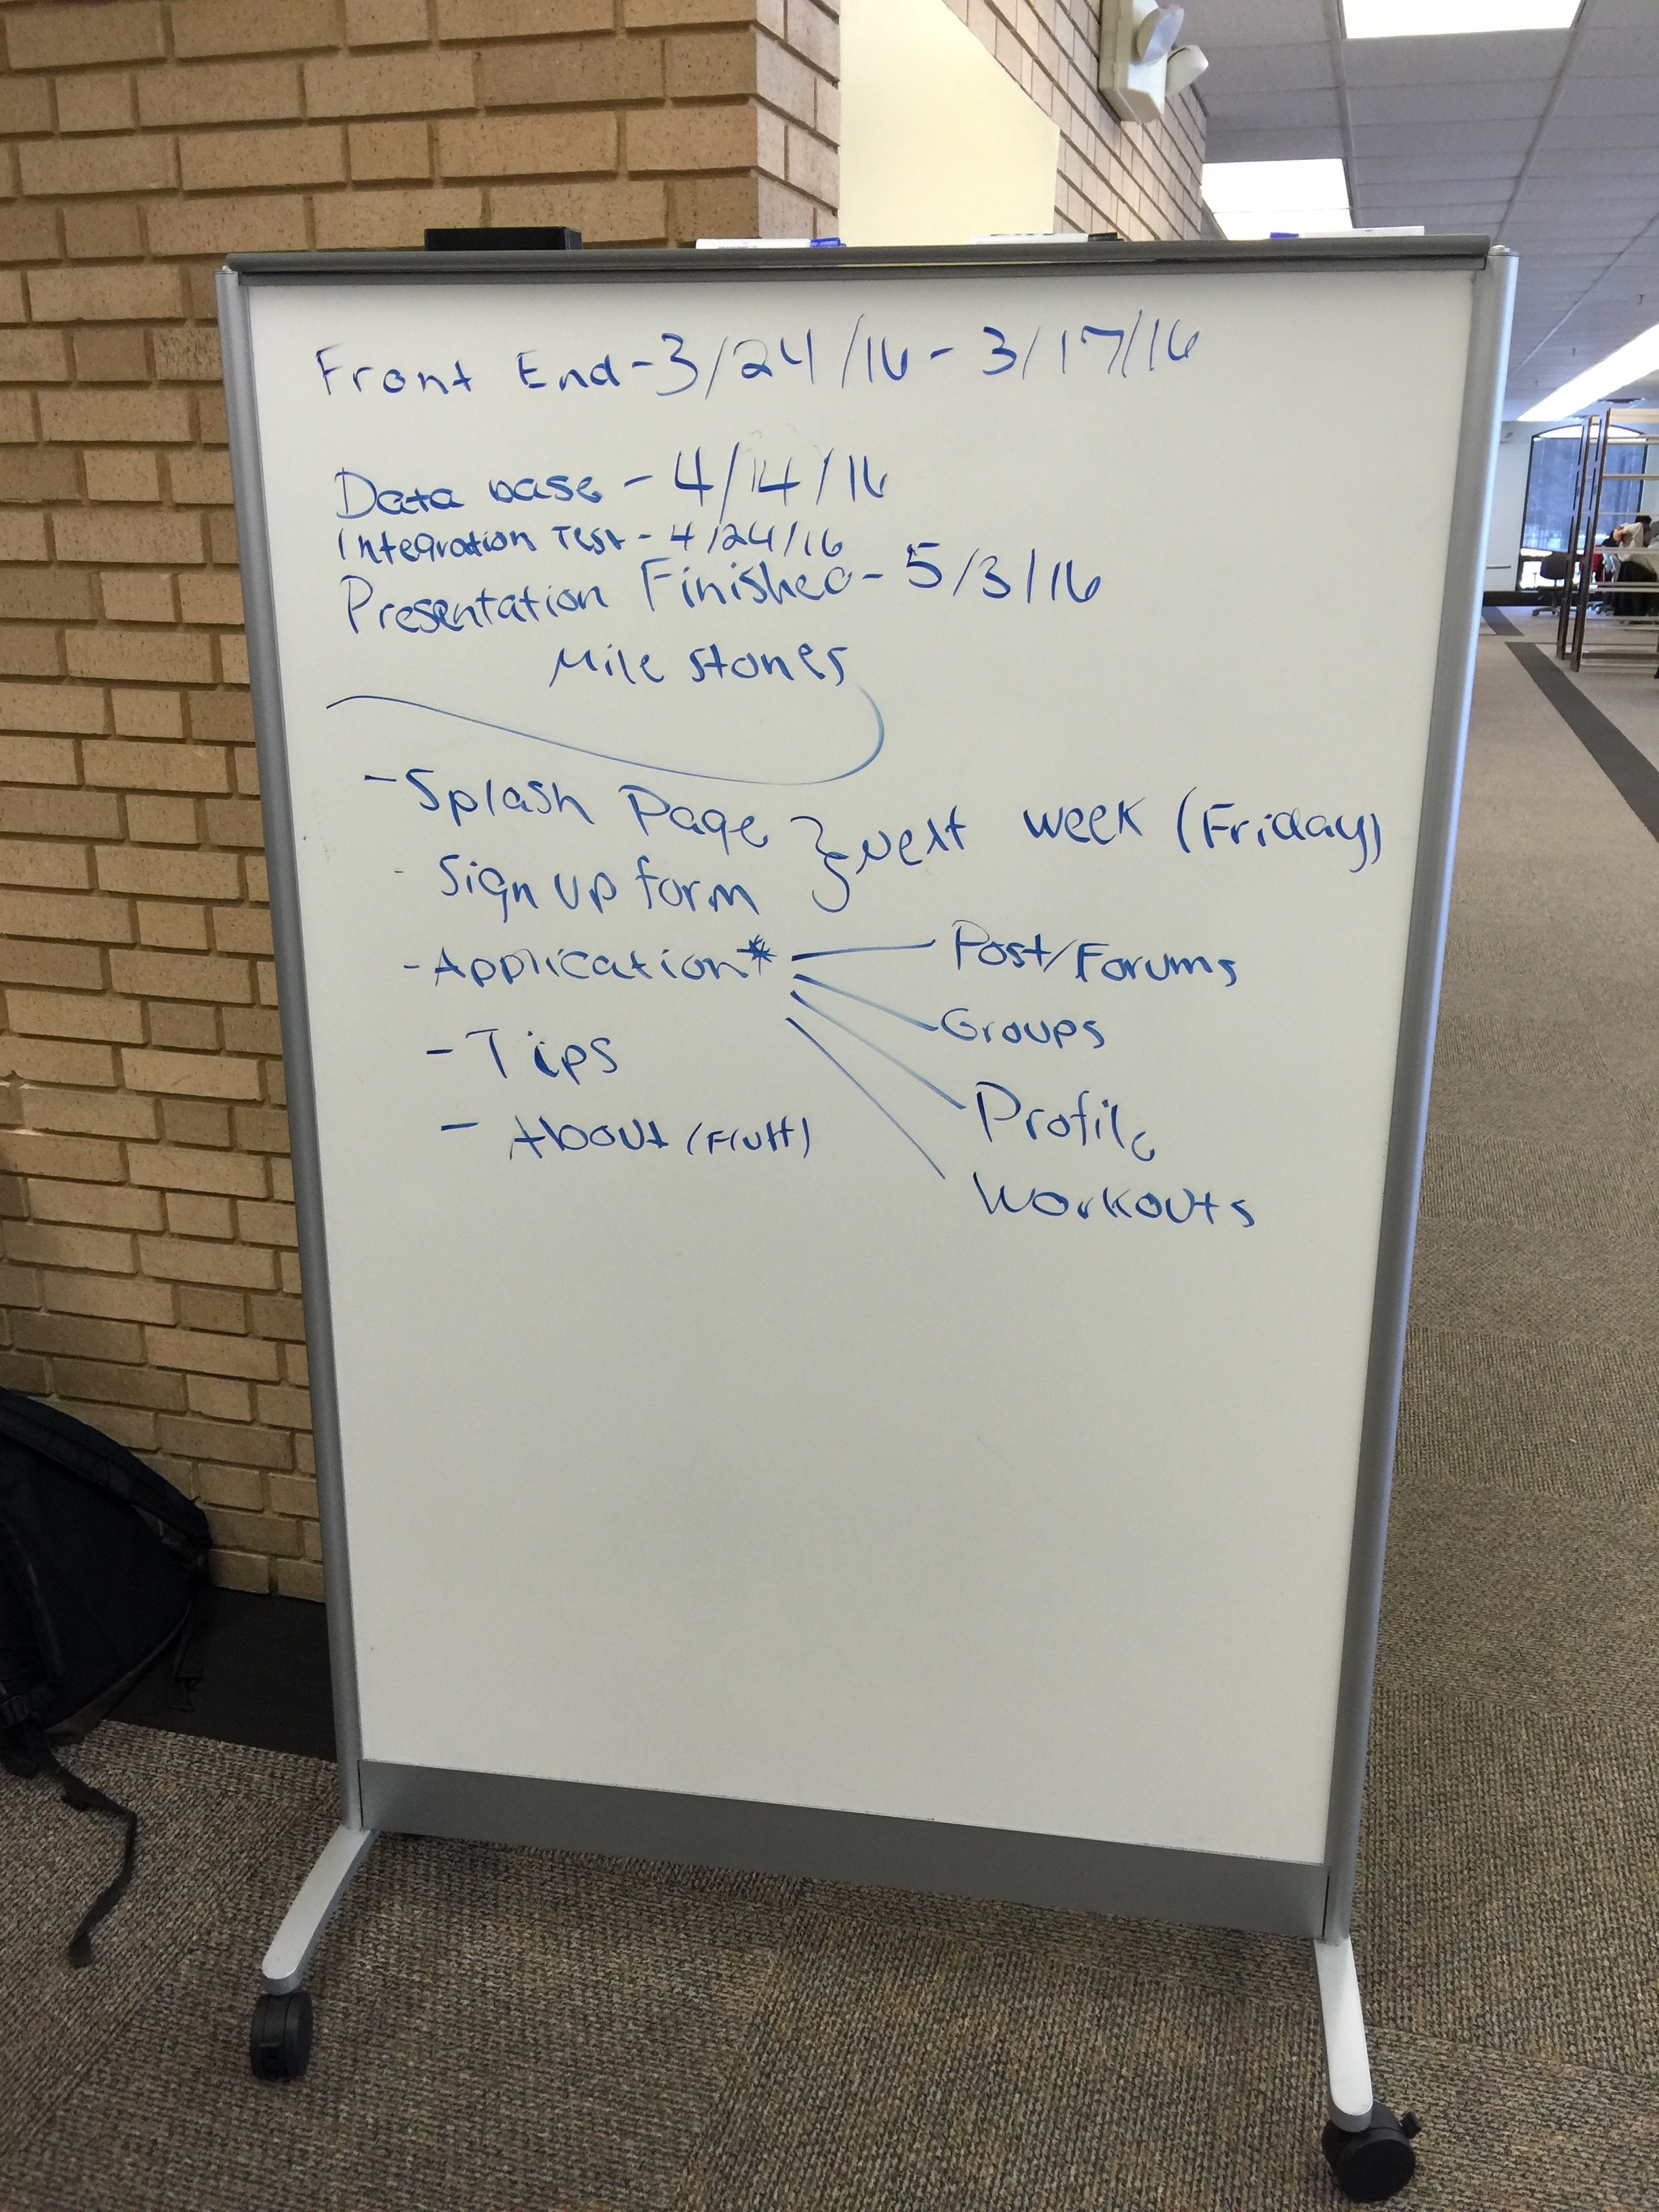 Front End - 3/24/16 - 3/17/16
Data base - 4/14/16
Integration Test - 4/24/16
Presentation Finished - 5/3/16
Mile stones
- Splash Page
- Sign up form
Next week (Friday)
- Application*
Post/Forums
Groups
Profile
Workouts
- Tips
- About